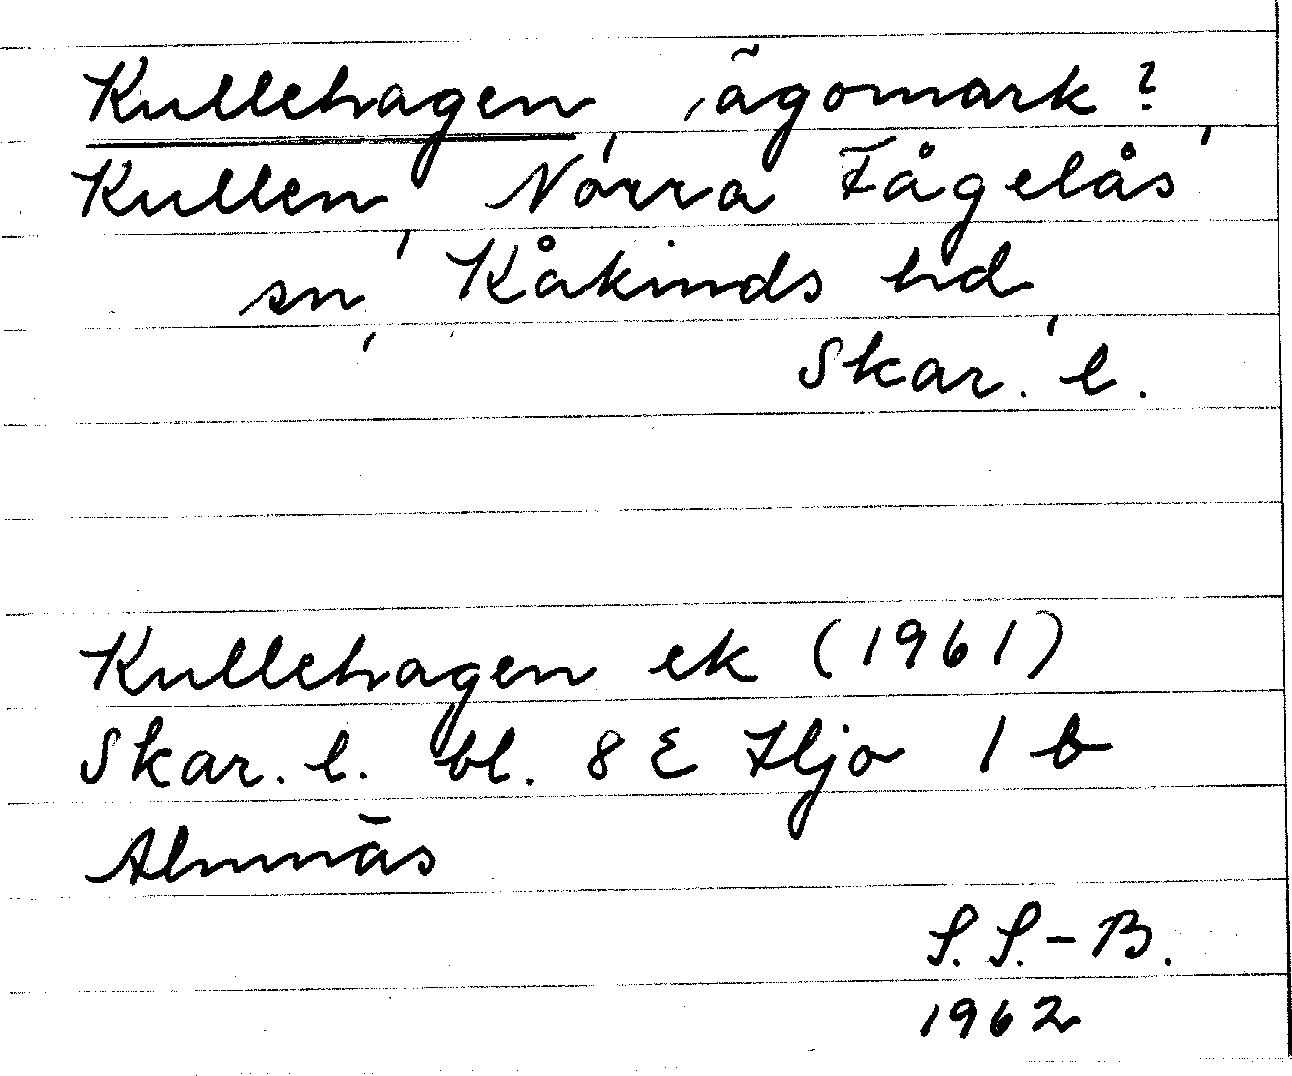 Kullehagen, ägomark?,
Kullen, Norra Fågelås
sn, Kåkinds hd,
Skar. l.
Kullehagen ek (1961)
Skar. l. bl. 8 E Hjo 1 b
Almnäs
S. S.-B.
1962